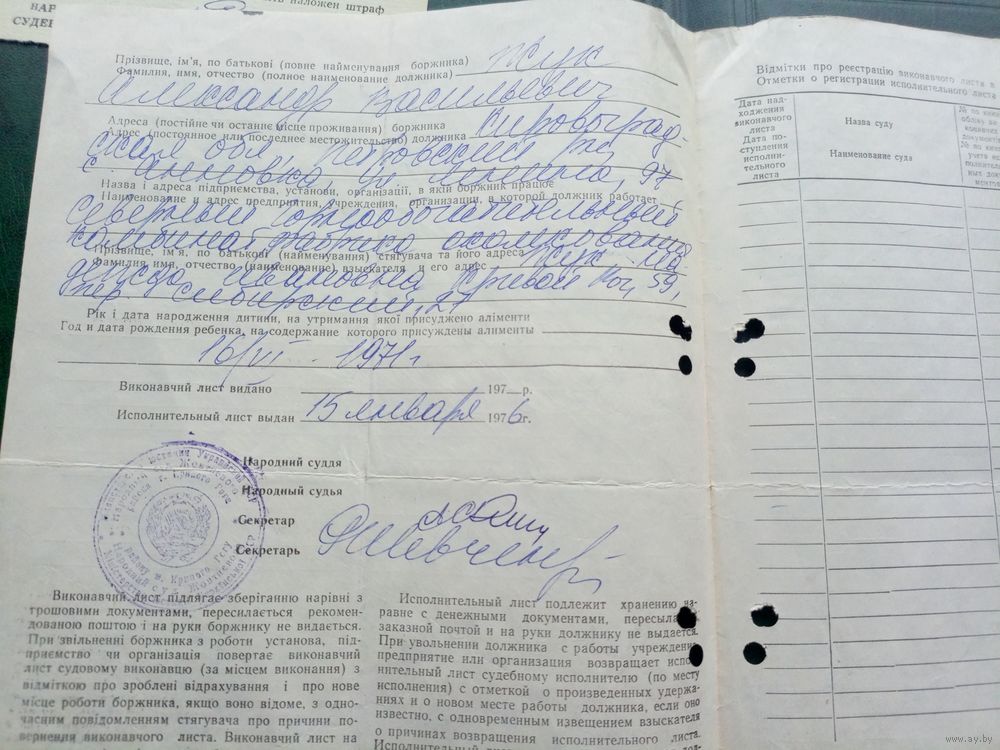 ть наложен штраф
НАР
СУДЕ
Прізвище, ім'я, по батькові (повне найменування боржника) Жук
Фамилия, имя, отчество (полное наименование должника)
Александр Васильевич
Адреса (постійне чи останнє місце проживання) боржника
Адрес (постоянное или последнее местожительство) должника Кировоград-
ская обл, Петровский
с. Анновка, ул Ленина, 97
Назва і адреса підприємства, установи, організації, в якій боржник працює
Наименование и адрес предприятия, учреждения, организации, в которой должник работает
Северный горнообогатительный
комбинат фабрика окомкования
Прізвище, ім'я, по батькові (найменування) стягувача та його адреса
Фамилия, имя, отчество (наименование) взыскателя и его адрес Жук
Ивановна Кривой Рог, 59,
пер. Сибирский, 21
Рік і дата народження дитини, на утримання якої присуджено аліменти
Год и дата рождения ребенка, на содержание которого присуждены алименты
1971г
Виконавчий лист видано 197 р.
Исполнительный лист выдан 15 января 1976г.
Народний суддя
Народный судья
Секретар
Секретарь Шевченко
Виконавчий лист підлягає зберіганню нарівні з
грошовими документами, пересилається рекомен-
дованою поштою і на руки боржнику не видається.
При звільненні боржника з роботи установа, під-
приємство чи організація повертає виконавчий
лист судовому виконавцю (за місцем виконання) з
відміткою про зроблені відрахування і про нове
місце роботи боржника, якщо воно відоме, з одно-
часним повідомленням стягувача про причини по-
вернення виконавчого листа. Виконавчий лист на
Исполнительный лист подлежит хранению на-
равне с денежными документами, пересылается
заказной почтой и на руки должнику не выдается.
При увольнении должника с работы учреждение,
предприятие или организация возвращает испол-
нительный лист судебному исполнителю (по месту
исполнения) с отметкой о произведенных удержа-
ниях и о новом месте работы должника, если оно
известно, с одновременным извещением взыскателя
о причинах возвращения исполнительного листа.
Исполнительный лист
Відмітки про реєстрацію виконавчого листа в
Отметки о регистрации исполнительного листа
Дата над-
ходження
виконавчого
листа
Дата по-
ступления
исполни-
тельного
листа
Назва суду
Наименование суда
www.ay.by